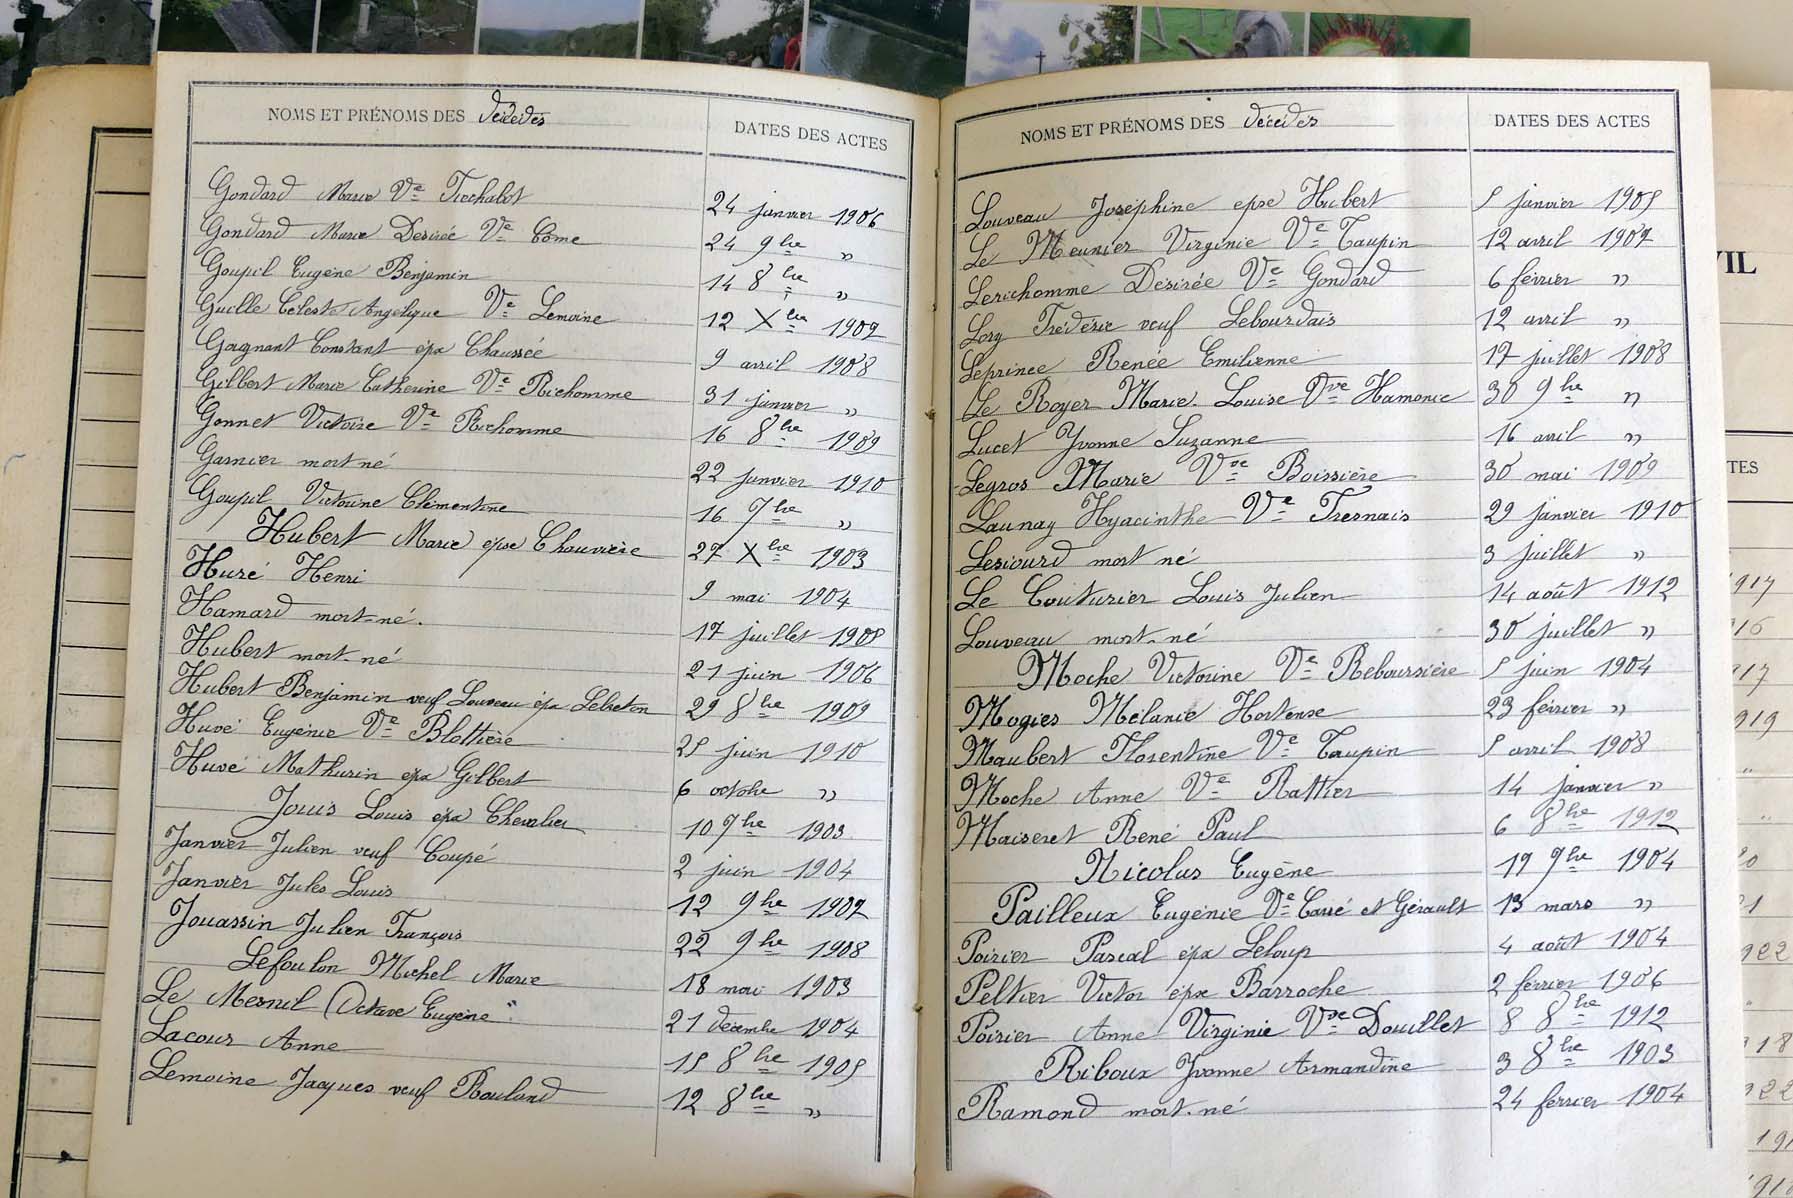 NOMS ET PRÉNOMS DES décédés DATES DES ACTES
Gondard Marie Vᵉ Trochalot 24 janvier 1906
Gondard Marie Desirée Vᵉ Côme 24 9bre "
Goupil Eugène Benjamin 14 8bre "
Guille Céleste Angélique Vᵉ Lemoine 12 Xbre 1907
Gagnant Constant épx Chaussée 9 avril 1908
Gilbert Marie Catherine Vᵉ Richomme 31 janvier "
Gonnet Victoire Vᵉ Richomme 16 8bre 1909
Garnier mort né 22 janvier 1910
Goupil Victorine Clémentine 16 7bre "
Hubert Marie épse Chauvière 27 Xbre 1903
Huré Henri 9 mai 1904
Hamard mort-né. 17 juillet 1905
Hubert mort-né 21 juin 1906
Hubert Benjamin veuf Louveau épx Lebreton 29 8bre 1909
Huvé Eugénie Vᵉ Blottière 25 juin 1910
Huvé Mathurin épx Gilbert 6 octobre "
Jouis Louis épx Chevalier 10 7bre 1903
Janvier Julien veuf Coupé 2 juin 1904
Janvier Jules Louis 12 9bre 1907
Jouassin Julien François 22 9bre 1908
Lefoulon Michel Marie 18 mai 1903
Le Mesnil Octave Eugène 21 décembre 1904
Lacour Anne 15 8bre 1905
Lemoine Jacques veuf Rouland 12 8bre "
NOMS ET PRÉNOMS DES décédés DATES DES ACTES
Louveau Joséphine epse Hubert 5 janvier 1905
Le Meunier Virginie Vᵉ Taupin 12 avril 1907
Lerichomme Desirée Vᵉ Gondard 6 février "
Lory Frédéric veuf Lebourdais 12 avril "
Leprince Renée Emilienne 17 juillet 1908
Le Royer Marie Louise Vve Hamonic 30 9bre "
Lucet Yvonne Suzanne 16 avril "
Legros Marie Vve Boissière 30 mai 1909
Launay Hyacinthe Vᵉ Fresnais 29 janvier 1910
Lesiourd mort né 3 juillet "
Le Couturier Louis Julien 14 août 1912
Louveau mort-né 30 juillet "
Moche Victorine Vᵉ Reboursière 5 juin 1904
Mogies Mélanie Hortense 23 février "
Maubert Florentine Vᵉ Taupin 5 avril 1908
Moche Anne Vᵉ Rattier 14 janvier "
Maiseret René Paul 6 8bre 1912
Nicolas Eugène 19 9bre 1904
Pailleux Eugénie Vᵉ Carré et Gérault 13 mars "
Poirier Pascal épx Leloup 4 août 1904
Peltier Victor épx Barroche 2 février 1906
Poirier Anne Virginie Vve Douillet 8 8bre 1912
Riboux Yvonne Armandine 3 8bre 1903
Ramond mort-né 24 février 1904
VIL
TES
1917
1919
1922